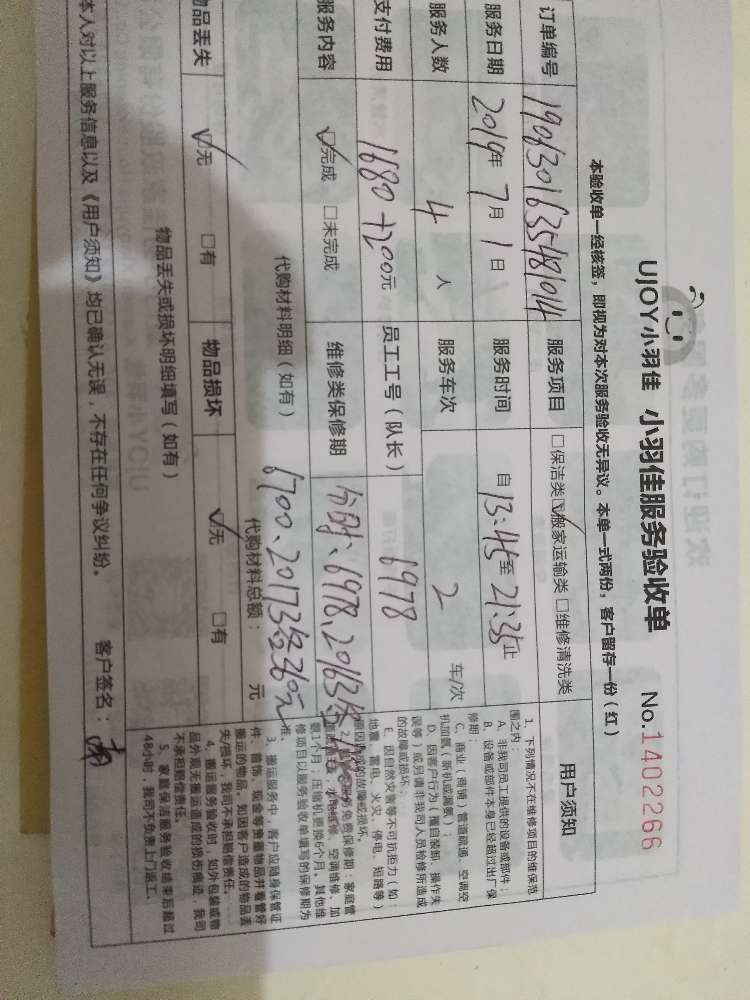 UJOY小羽佳 小羽佳服务验收单 No.1402266
本验收单一经核签，即视为对本次服务验收无异议。本单一式两份，客户留存一份（红）
订单编号 1906301635481014 服务项目 □保洁类☑搬家运输类 □维修清洗类
服务日期 2019年 7月 1日 服务时间 自 13:45至 21:35止
服务人数 4 人 服务车次 2 车/次
支付费用 1680+200元 员工工号（队长） 6978
服务内容 ☑完成 □未完成 维修类保修期
分时、6978、20163
代购材料明细（如有）
6700、20173各360元
代购材料总额： 元
物品丢失 ☑无 □有 物品损坏 ☑无 □有
物品丢失或损坏明细填写（如有）
本人对以上服务信息以及《用户须知》均已确认无误，不存在任何争议纠纷。 客户签名：
用户须知
1、下列情况不在维修项目的维保范
围之内：
A、非我司员工提供的设备或部件；
B、设备或部件本身已经超过出厂保
修期；
C、商业（商铺）管道疏通、空调空
机加氨（新机或漏氨）；
D、因客户行为（擅自装卸、操作失
误等）或另请非我司人员检修所造成
的故障或损坏；
E、因自然灾害等不可抗拒力（如：
地震、雷电、火灾、停电、短路等）
原因造成的故障或损坏。
服务免费保修期：家庭管
水电维修、空调维修、加
氨1个月；压缩机更换6个月。其他维
修项目以服务验收单填写的保修期为
准。
3、搬运服务中，客户应随身保管证
件、首饰、现金等贵重物品并看管好
搬运的物品，如因客户造成的物品丢
失/损坏，我司不承担赔偿责任。
4、搬运服务验收时，如外包装或物
品外观无搬运造成的损伤痕迹，我司
不承担赔偿责任。
5、家庭保洁服务验收结束后超过
48小时，我司不负责上门返工。